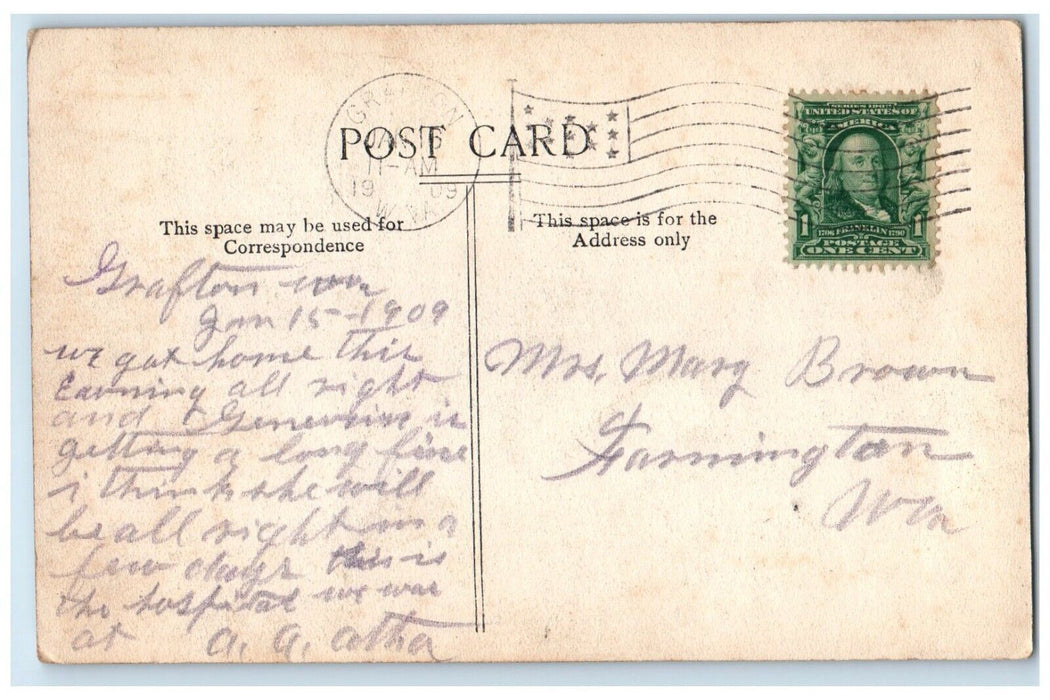 GRAFTON
JAN 16
11-AM
1909
W.VA.
POST CARD
SERIES 1902
UNITED STATES OF
AMERICA
1 1706 FRANKLIN 1790 1
POSTAGE
ONE CENT
This space may be used for
Correspondence
This space is for the
Address only
Grafton wva
Jan 15-1909
we got home this
Eavning all right
and Genevive is
getting a long fine
i think she will
be all right in a
few days this is
the hospital we was
at a. a. atha
Mrs. Mary Brown
Farmington
Wva